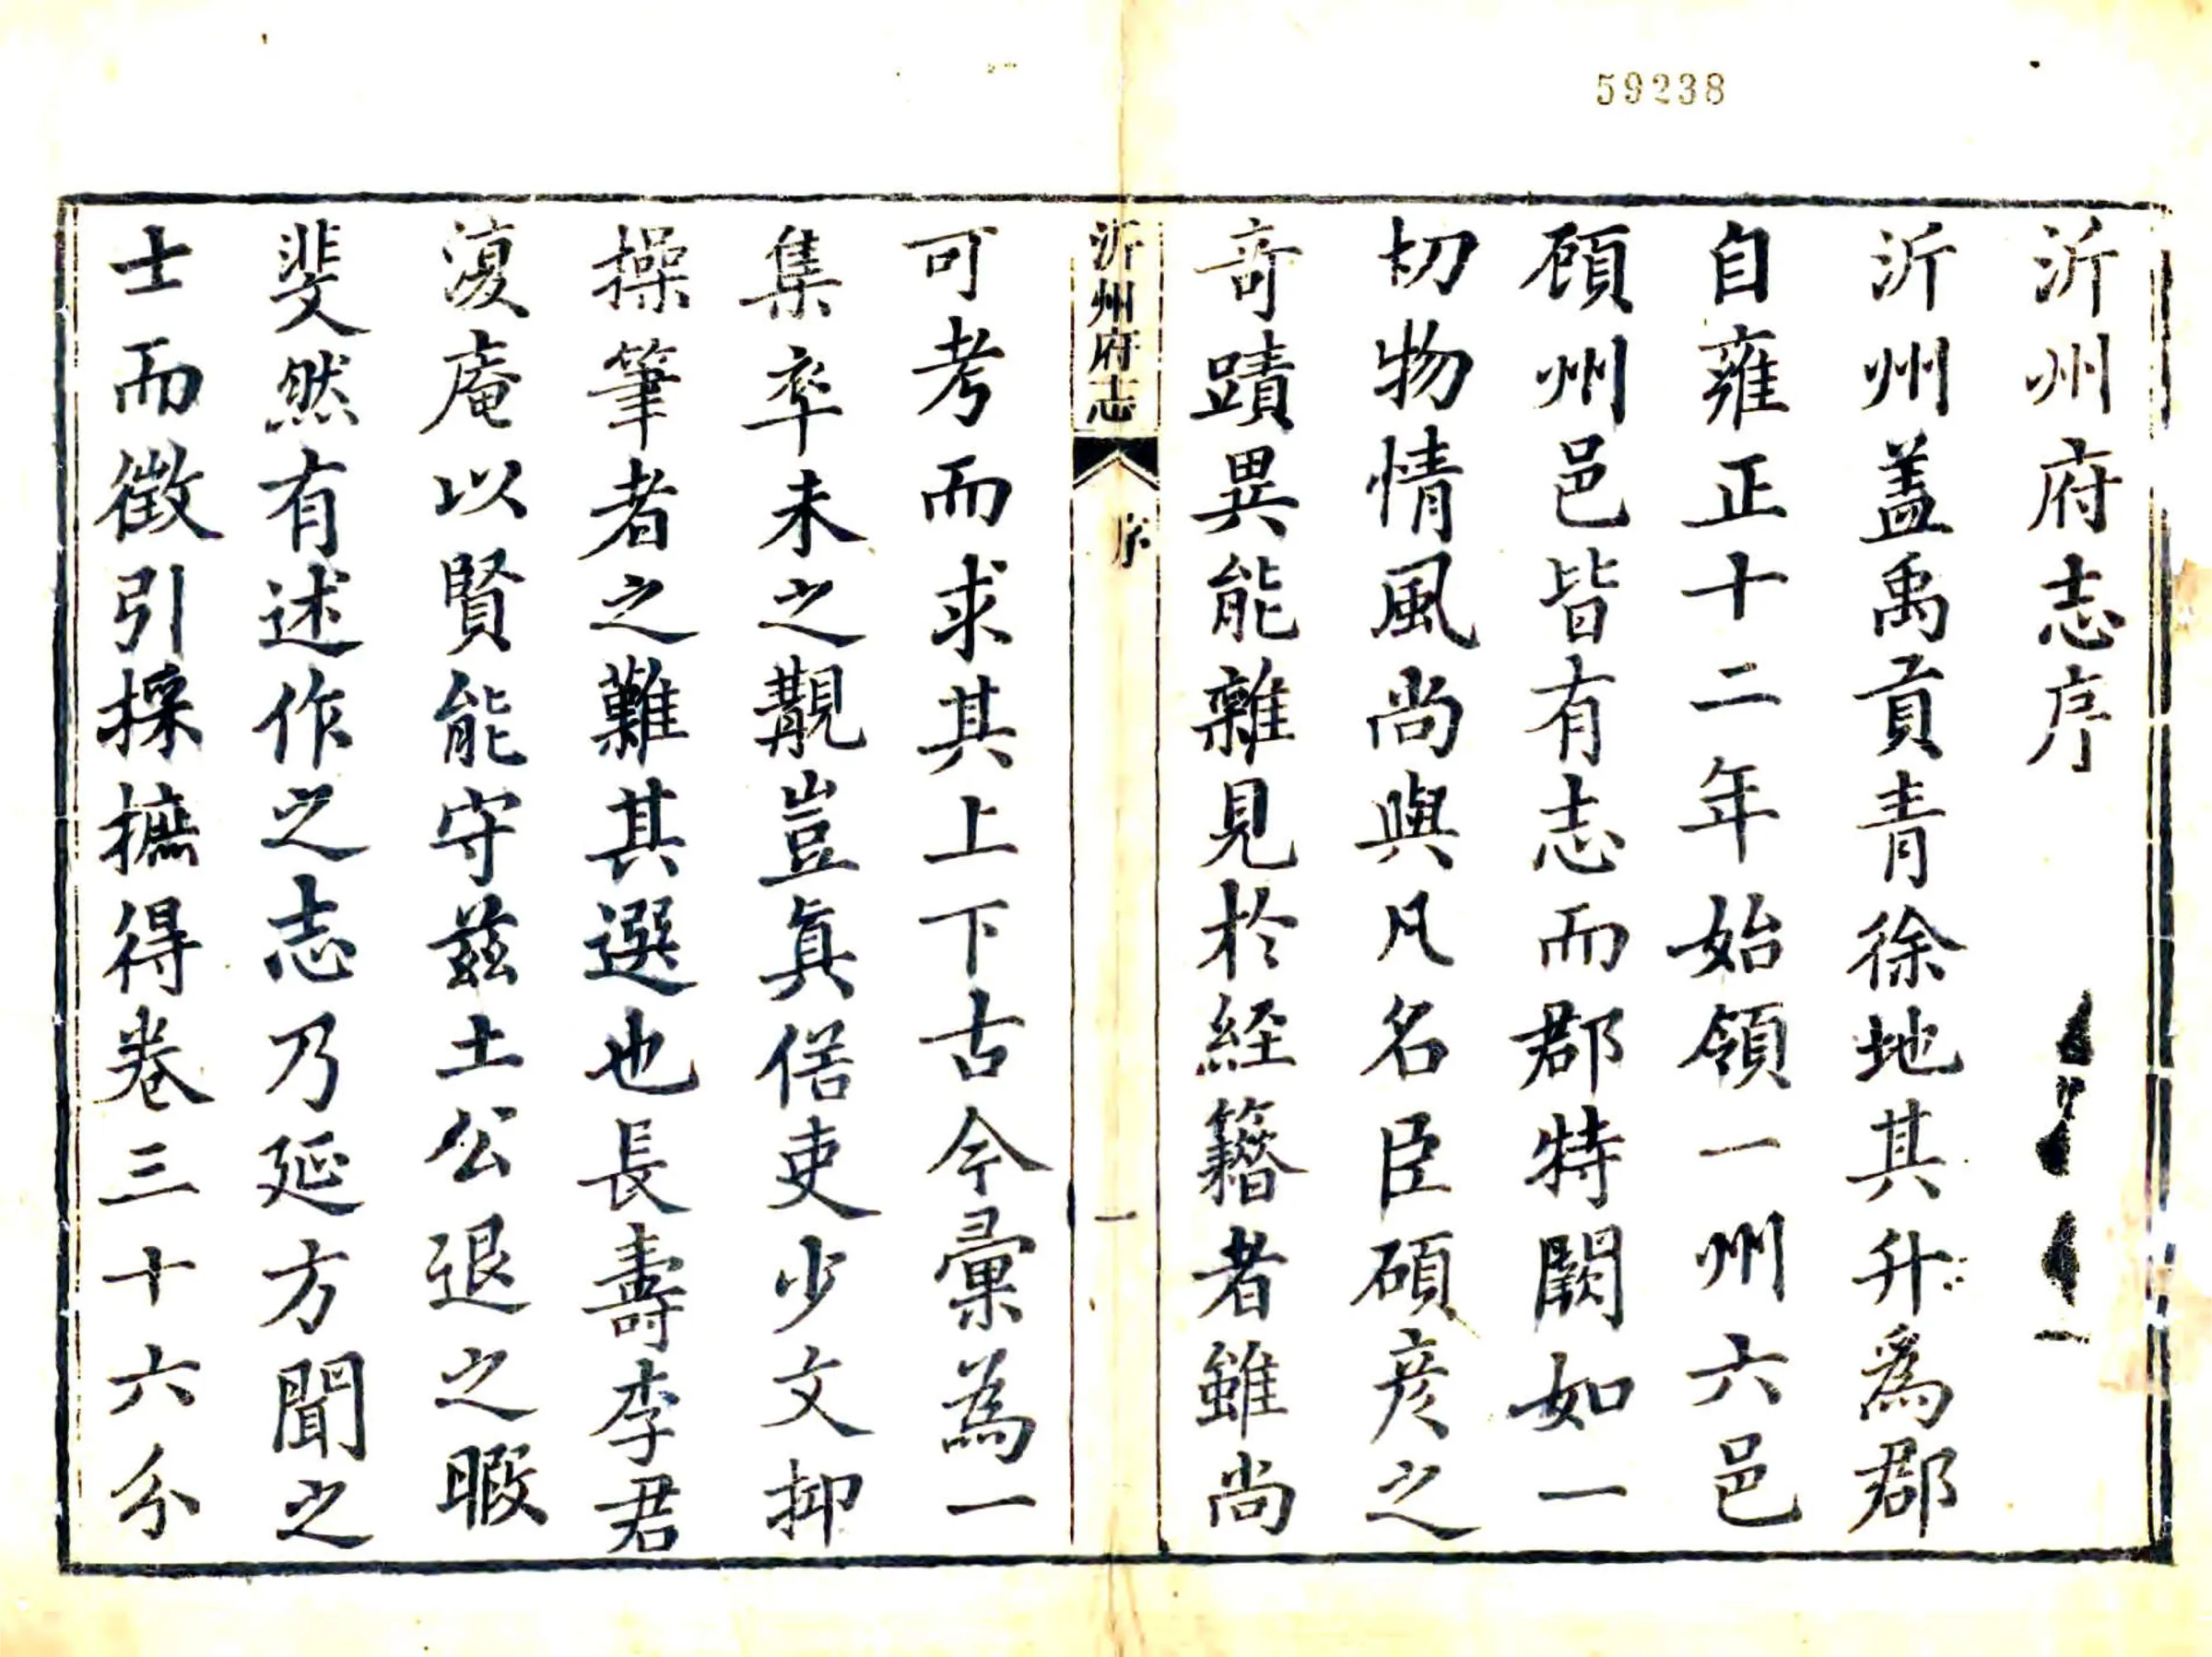 59238
沂州府志序
沂州蓋禹貢青徐地其升爲郡
自雍正十二年始領一州六邑
顧州邑皆有志而郡特闕如一
切物情風尚與凡名臣碩彦之
奇蹟異能雜見於経籍者雖尚
沂州府志
序
一
可考而求其上下古今彙為一
集率未之覩豈眞俗吏少文抑
操筆者之難其選也長壽李君
澓庵以賢能守兹土公退之暇
斐然有述作之志乃延方聞之
士而徴引採摭得卷三十六分